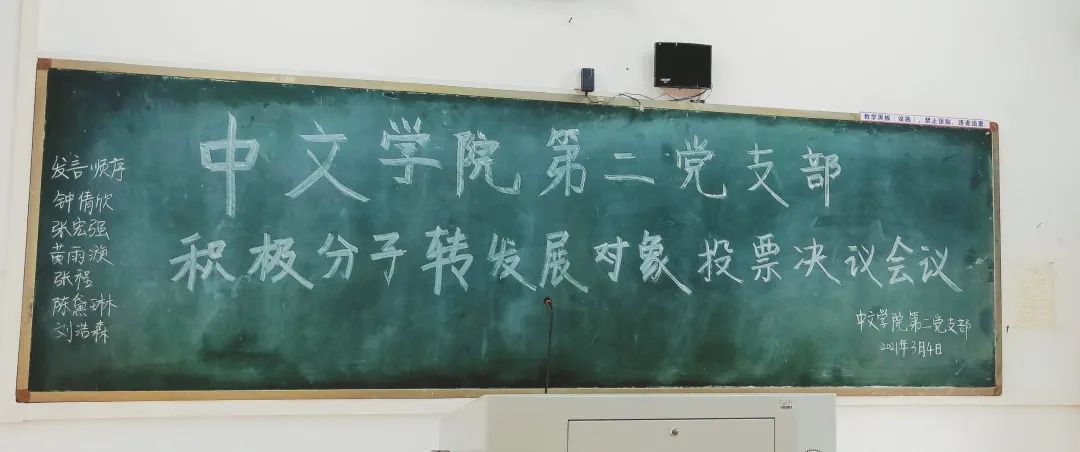 教学黑板(设施),禁止张贴,违者追责
中文学院第二党支部
积极分子转发展对象投票决议会议
发言顺序
钟倩欣
张宏强
黄雨濒
张程
陈黛琳
刘浩森
中文学院第二党支部
2021年3月4日